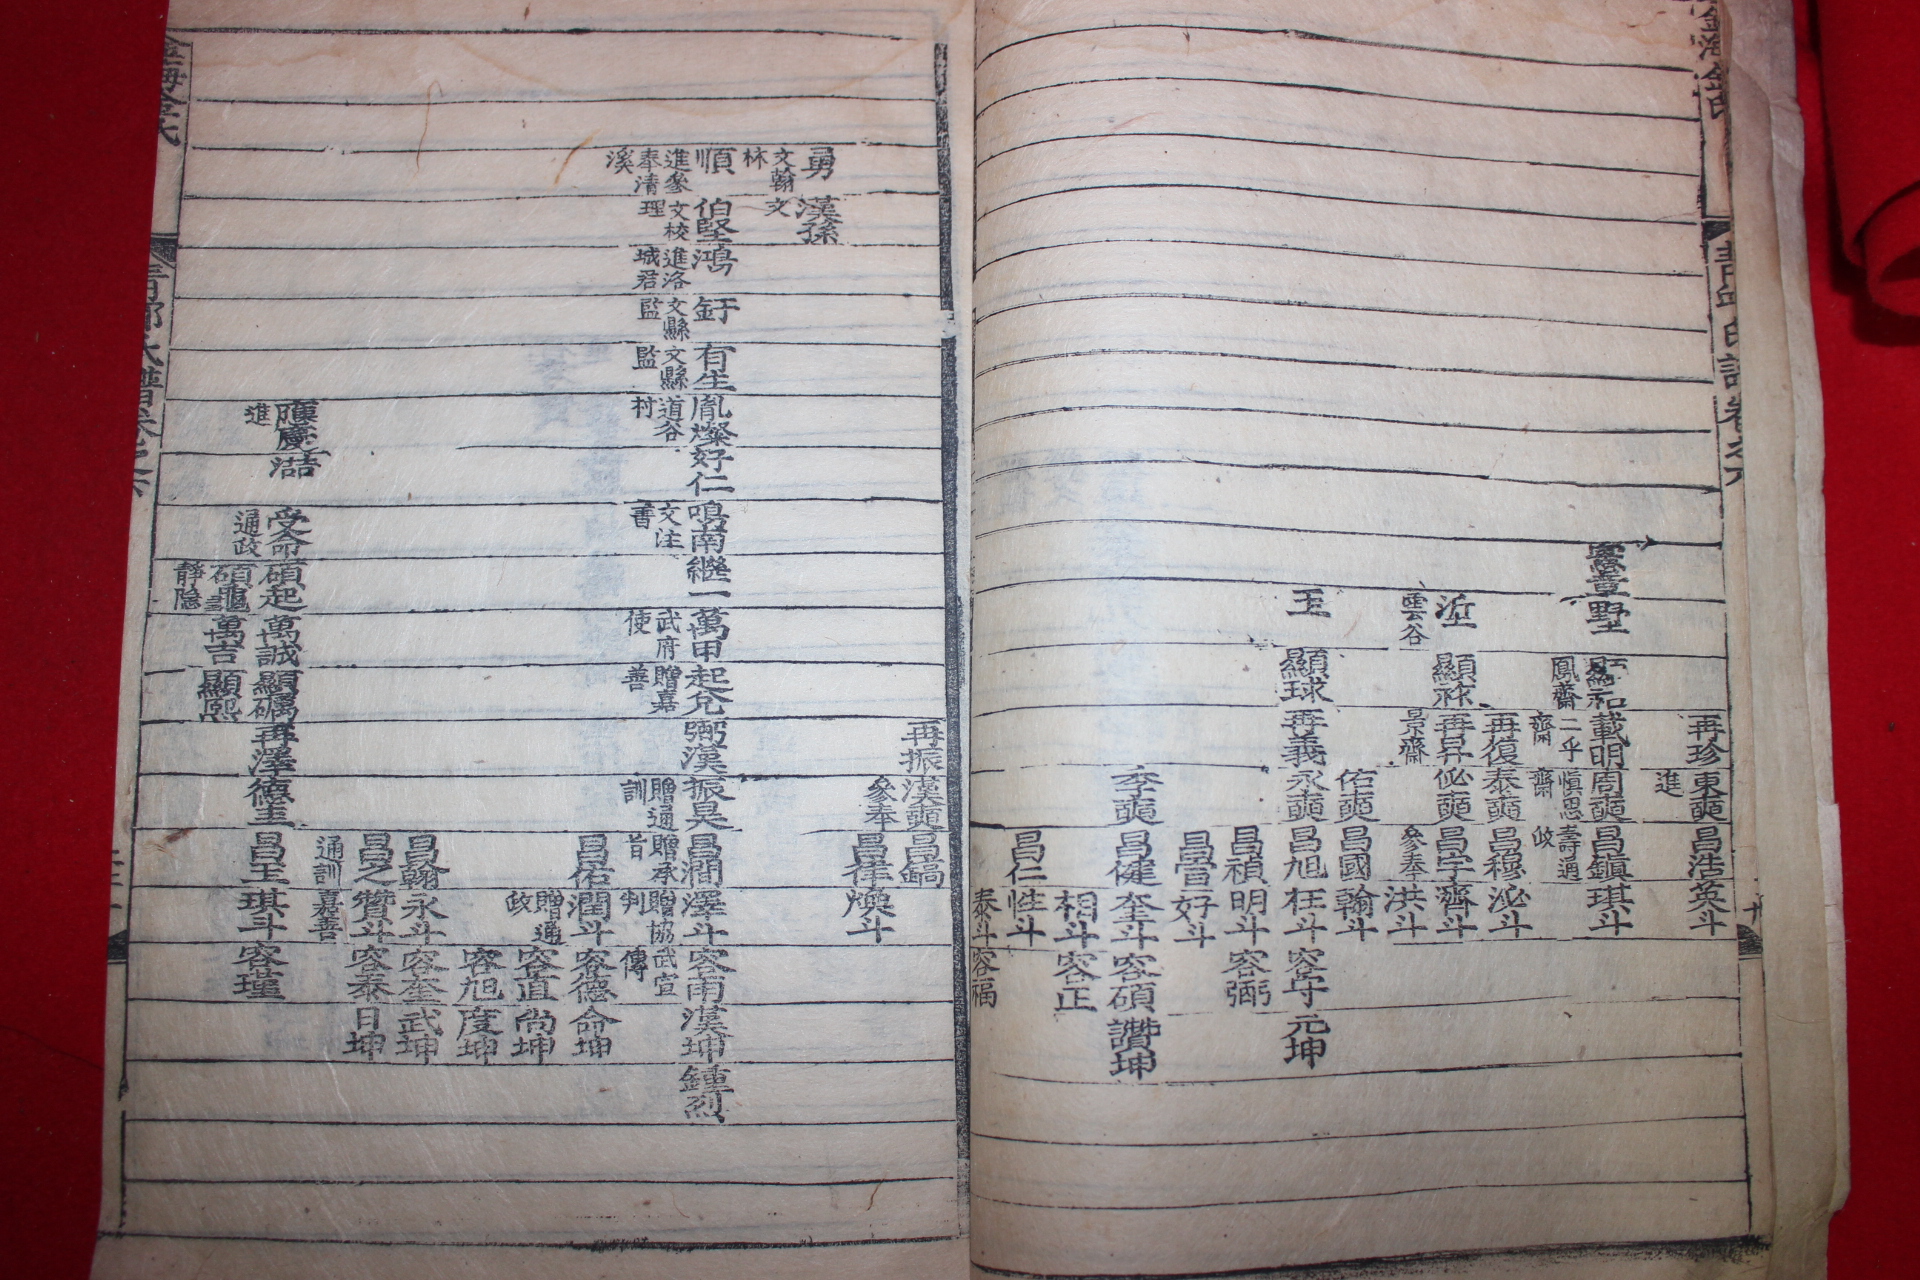 金海金氏
靑丘氏譜卷之六
再珍
東奭
進
昌浩
英斗
憲章
墅
顯和
鳳齋
載明
二乎
齋
周奭
愼思
齋
昌鎭
壽通
政
琪斗
再復
泰奭
昌穆
泌斗
垽
雲谷
顯祢
再昇
景齋
佖奭
昌宇
參奉
齊斗
洪斗
佑奭
昌國
翰斗
玉
顯球
再義
永奭
昌旭
枉斗
容守
元坤
昌禎
明斗
容弼
昌管
好斗
季奭
昌健
奎斗
容碩
讚坤
相斗
容正
昌仁
性斗
泰斗
容福
再振
漢奭
參奉
昌鎬
昌律
煥斗
勇
文翰
林
漢孫
文
順
進參
奉清
溪
伯堅
文校
理
鴻
進洛
城君
釪
文縣
監
有生
文縣
監
胤燦
道谷
村
好仁
鳴南
文注
書
繼一
萬甲
武府
使
起兌
贈嘉
善
弼漢
振昊
贈通
訓
昌潤
贈承
旨
澤斗
贈協
判
容南
武宣
傳
漢坤
鍾烈
昌佑
潤斗
贈通
政
容德
命坤
容直
尙坤
容旭
度坤
昌翰
永斗
容奎
武坤
昌之
通訓
贊斗
嘉善
容泰
日坤
應慶
進
喆
受命
通政
碩起
萬誠
顯礪
再澤
德圭
昌玉
琪斗
容瑾
碩龜
靜隱
萬吉
顯熙
金海金氏
靑邱氏譜卷之六